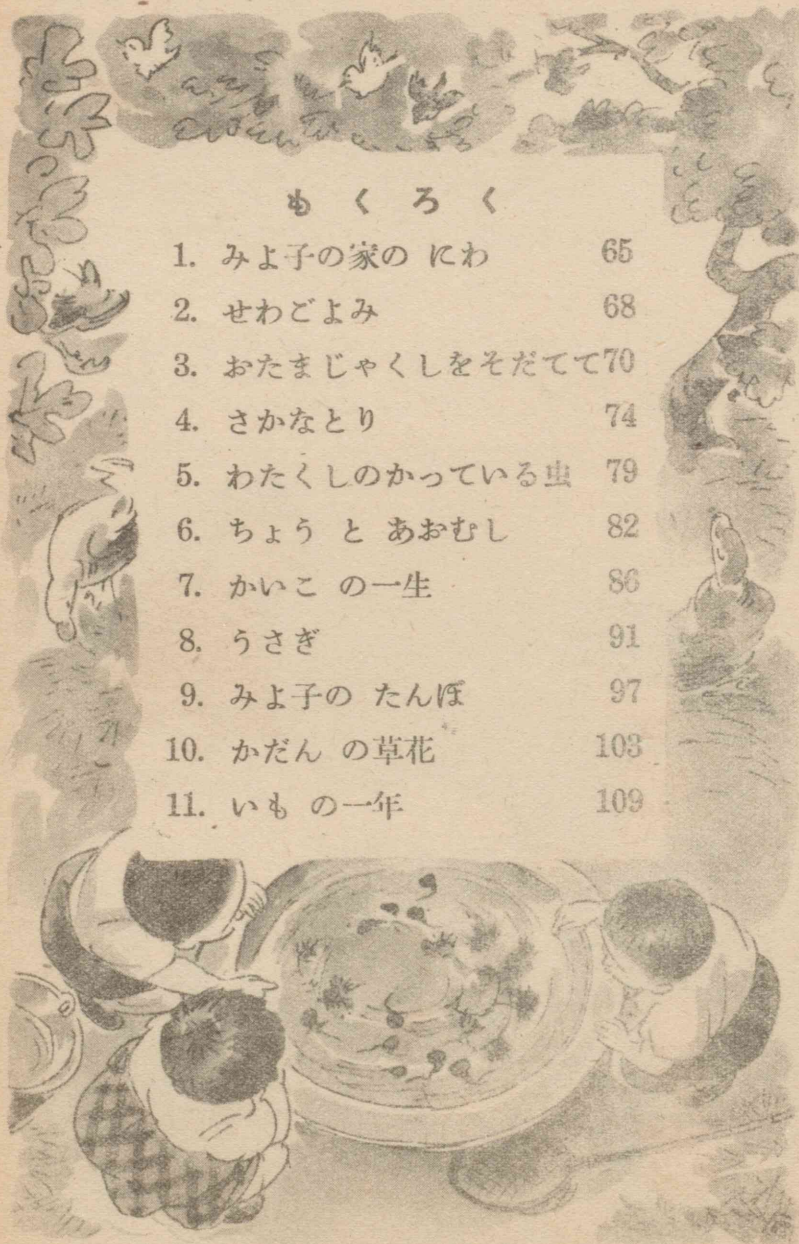 もくろく
1. みよ子の家の にわ 65
2. せわごよみ 68
3. おたまじゃくしをそだてて 70
4. さかなとり 74
5. わたくしのかっている虫 79
6. ちょう と あおむし 82
7. かいこ の一生 86
8. うさぎ 91
9. みよ子の たんぼ 97
10. かだん の草花 103
11. いも の一年 109